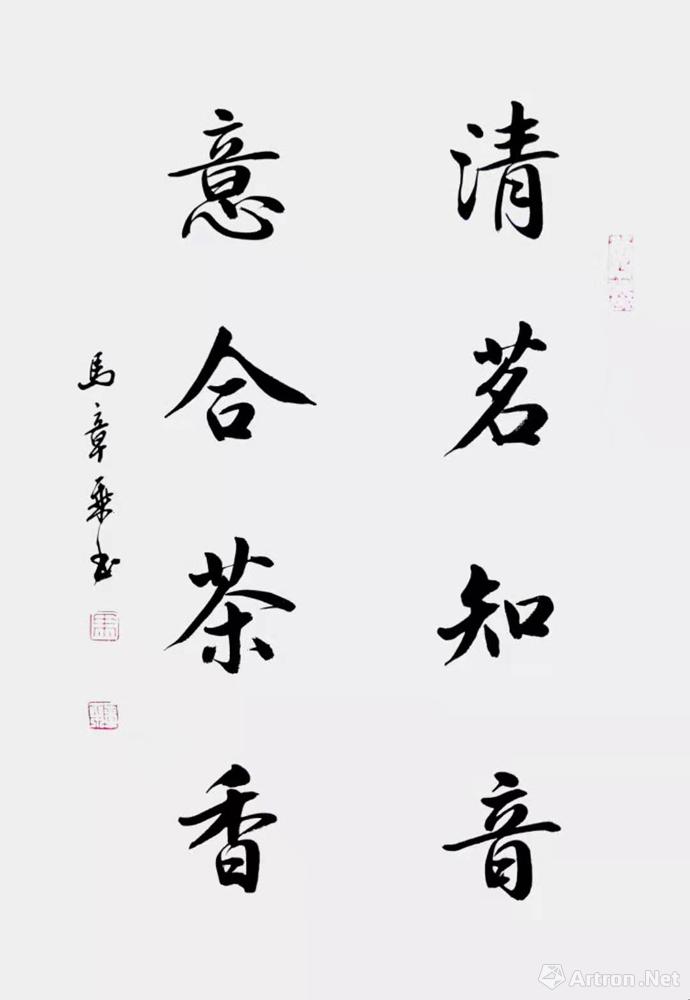 清茗知音
意合茶香
馬章乘书
Artron.Net